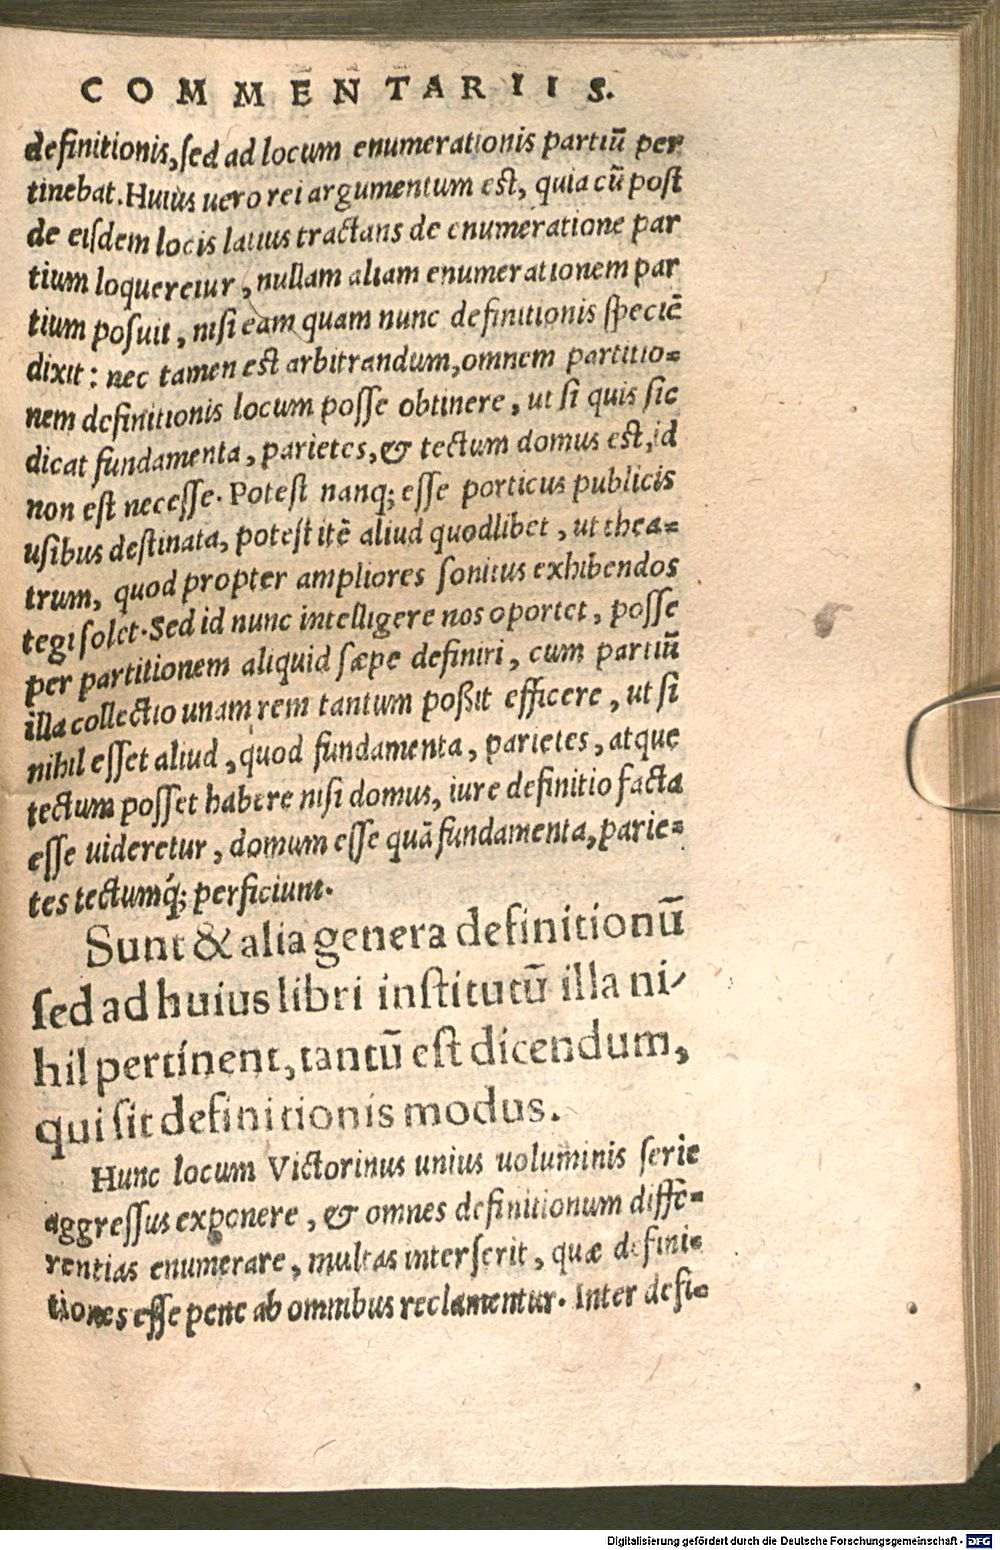 COMMENTARIIS.
definitionis, sed ad locum enumerationis partiū per
tinebat. Huius uero rei argumentum est, quia cū post
de eisdem locis latius tractans de enumeratione par
tium loqueretur, nullam aliam enumerationem par
tium posuit, nisi eam quam nunc definitionis speciē
dixit: nec tamen est arbitrandum, omnem partitio=
nem definitionis locum posse obtinere, ut si quis sic
dicat fundamenta, parietes, & tectum domus est, id
non est necesse. Potest nanq; esse porticus publicis
usibus destinata, potest itē aliud quodlibet, ut thea=
trum, quod propter ampliores sonitus exhibendos
tegi solet. Sed id nunc intelligere nos oportet, posse
per partitionem aliquid sæpe definiri, cum partiū
illa collectio unam rem tantum poßit efficere, ut si
nihil esset aliud, quod fundamenta, parietes, atque
tectum posset habere nisi domus, iure definitio facta
esse uideretur, domum esse quā fundamenta, parie=
tes tectumq́; perficiunt.
Sunt & alia genera definitionū
sed ad huius libri institutū illa ni-
hil pertinent, tantū est dicendum,
qui sit definitionis modus.
Hunc locum Victorinus unius uoluminis serie
aggressus exponere, & omnes definitionum diffe=
rentias enumerare, multas interserit, quæ defini=
tiones esse pene ab omnibus reclamentur. Inter defi=
Digitalisierung gefördert durch die Deutsche Forschungsgemeinschaft - DFG